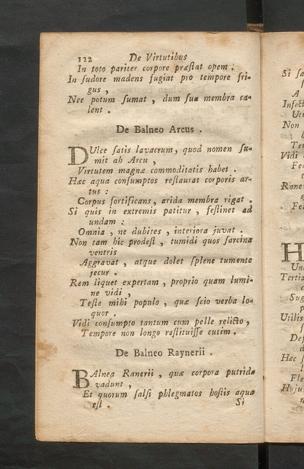 112 De Virtutibus
In toto pariter corpore præstat opem .
In sudore madens fugiat pro tempore fri-
gus ,
Nec potum sumat , dum sua membra ca-
lent .
De Balneo Arcus .
DUlce satis lavacrum, quod nomen su-
mit ab Arcu ,
Virtutem magnæ commoditatis habet .
Hæc aqua consumptos restaurat corporis ar-
tus :
Corpus fortificans , arida membra rigat .
Si quis in extremis patitur , festinet ad
undam :
Omnia , ne dubites , interiora juvat .
Non tam hic prodest , tumidi quos sarcina
ventris
Aggravat , atque dolet splene tumente
jecur .
Rem liquet expertam , proprio quam lumi-
ne vidi ,
Teste mihi populo , quæ scio verba lo-
quor .
Vidi consumpto tantum cum pelle relicto ,
Tempore non longo restituisse cutim .
De Balneo Raynerii .
BAlnea Ranerii , quæ corpora putrida
vadunt ,
Et quorum salsi phlegmatos hostis aqua
est . Si